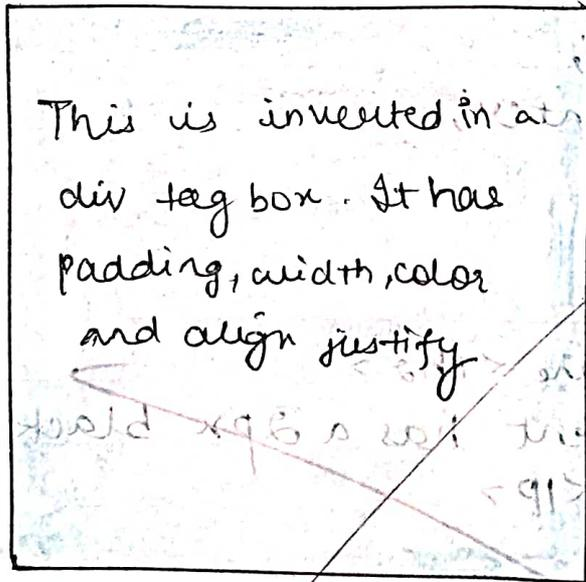 This is inverted in a
div tag box. It has
padding, width, color
and align justify